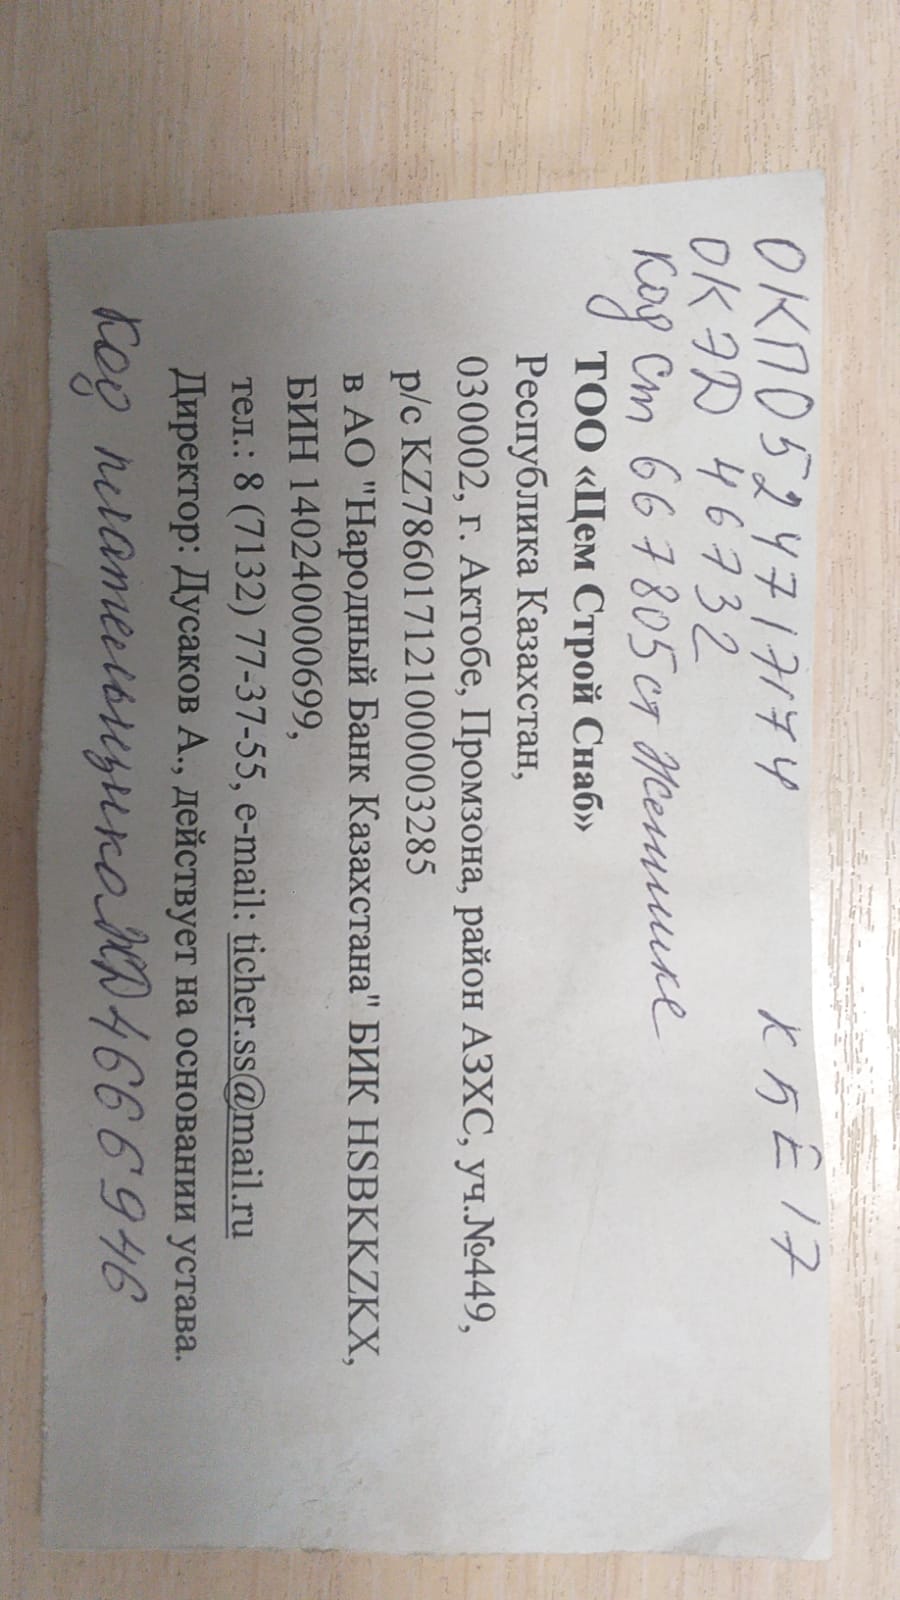 ОКПО 5247171744 КБЕ 17
ОКЭД 46732
Код ст 667805 ст Жинишке
ТОО «Цем Строй Снаб»
Республика Казахстан,
030002, г. Актобе, Промзона, район АЗХС, уч.№449,
р/с KZ786017121000003285
в АО "Народный Банк Казахстана" БИК HSBKKZKX,
БИН 140240000699,
тел.: 8 (7132) 77-37-55, e-mail: ticher.ss@mail.ru
Директор: Дусаков А., действует на основании устава.
Код плательщика 4666946